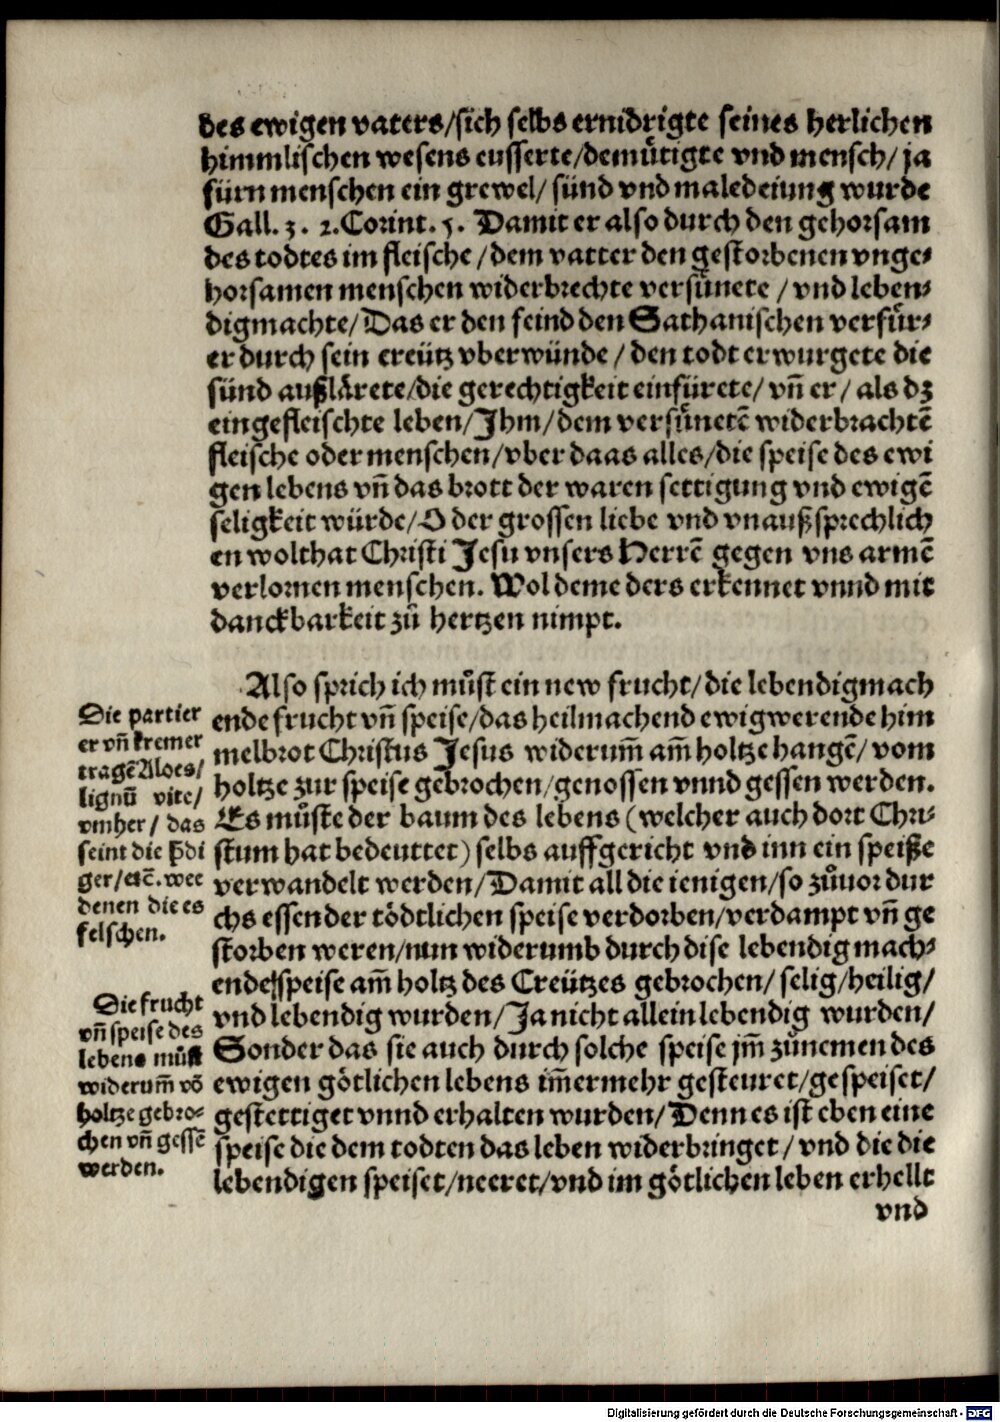 des ewigen vaters/sich selbs ernidrigte seines herlichen
himmlischen wesens eusserte/demuͤtigte vnd mensch/ ja
fürn menschen ein grewel/ sünd vnd maledeiung wurde
Gall. 3. 2.Corint. 5. Damit er also durch den gehorsam
des todtes im fleische /dem vatter den gestorbenen vnge⸗
horsamen menschen widerbrechte versuͤnete / vnd leben⸗
digmachte/ Das er den feind den Sathanischen verfuͤr⸗
er durch sein creütz vberwünde / den todt erwurgete die
sünd außlaͤrete/die gerechtigkeit einfuͤrete/ vn̄ er/ als dz
eingefleischte leben/ Ihm/ dem versuͤnetē widerbrachtē
fleische oder menschen/vber daas alles/die speise des ewi
gen lebens vn̄ das brott der waren settigung vnd ewigē
seligkeit würde/ O der grossen liebe vnd vnaußsprechlich
en wolthat Christi Jesu vnsers Herrē gegen vns armē
verlornen menschen. Wol deme ders erkennet vnnd mit
danckbarkeit zuͦ hertzen nimpt.
Also sprich ich muͤst ein new frucht/die lebendigmach
ende frucht vn̄ speise/das heilmachend ewigwerende him
melbrot Christus Jesus widerum̄ am̄ holtze hangē/ vom
holtze zur speise gebrochen/genossen vnnd gessen werden.
Es muͤste der baum des lebens (welcher auch dort Chri⸗
stum hat bedeuttet) selbs auffgericht vnd inn ein speiße
verwandelt werden/ Damit all die ienigen/so zuͦuor dur
chs essen der toͤdtlichen speise verdorben/verdampt vn̄ ge
storben weren/nun widerumb durch dise lebendig mach⸗
ende speise am̄ holtz des Creützes gebrochen/ selig/heilig/
vnd lebendig wurden/ Ja nicht allein lebendig wurden/
Sonder das sie auch durch solche speise jm̄ zuͦnemen des
ewigen goͤtlichen lebens im̄ermehr gesteuret/gespeiset/
gestettiget vnnd erhalten wurden/ Denn es ist eben eine
speise die dem todten das leben widerbringet/ vnd die die
lebendigen speiset/neeret/vnd im goͤtlichen leben erhellt
vnd
Die partier
er vn̄ kremer
tragē Aloes/
lignū vite/
vmher/ das
seint die p̄di
ger/etc̄. wee
denen die es
felschen.
Die frucht
vn̄ speise des
lebens muͤst
widerum̄ vō
holtze gebro⸗
chen vn̄ gessē
werden.
Digitalisierung gefördert durch die Deutsche Forschungsgemeinschaft - DFG